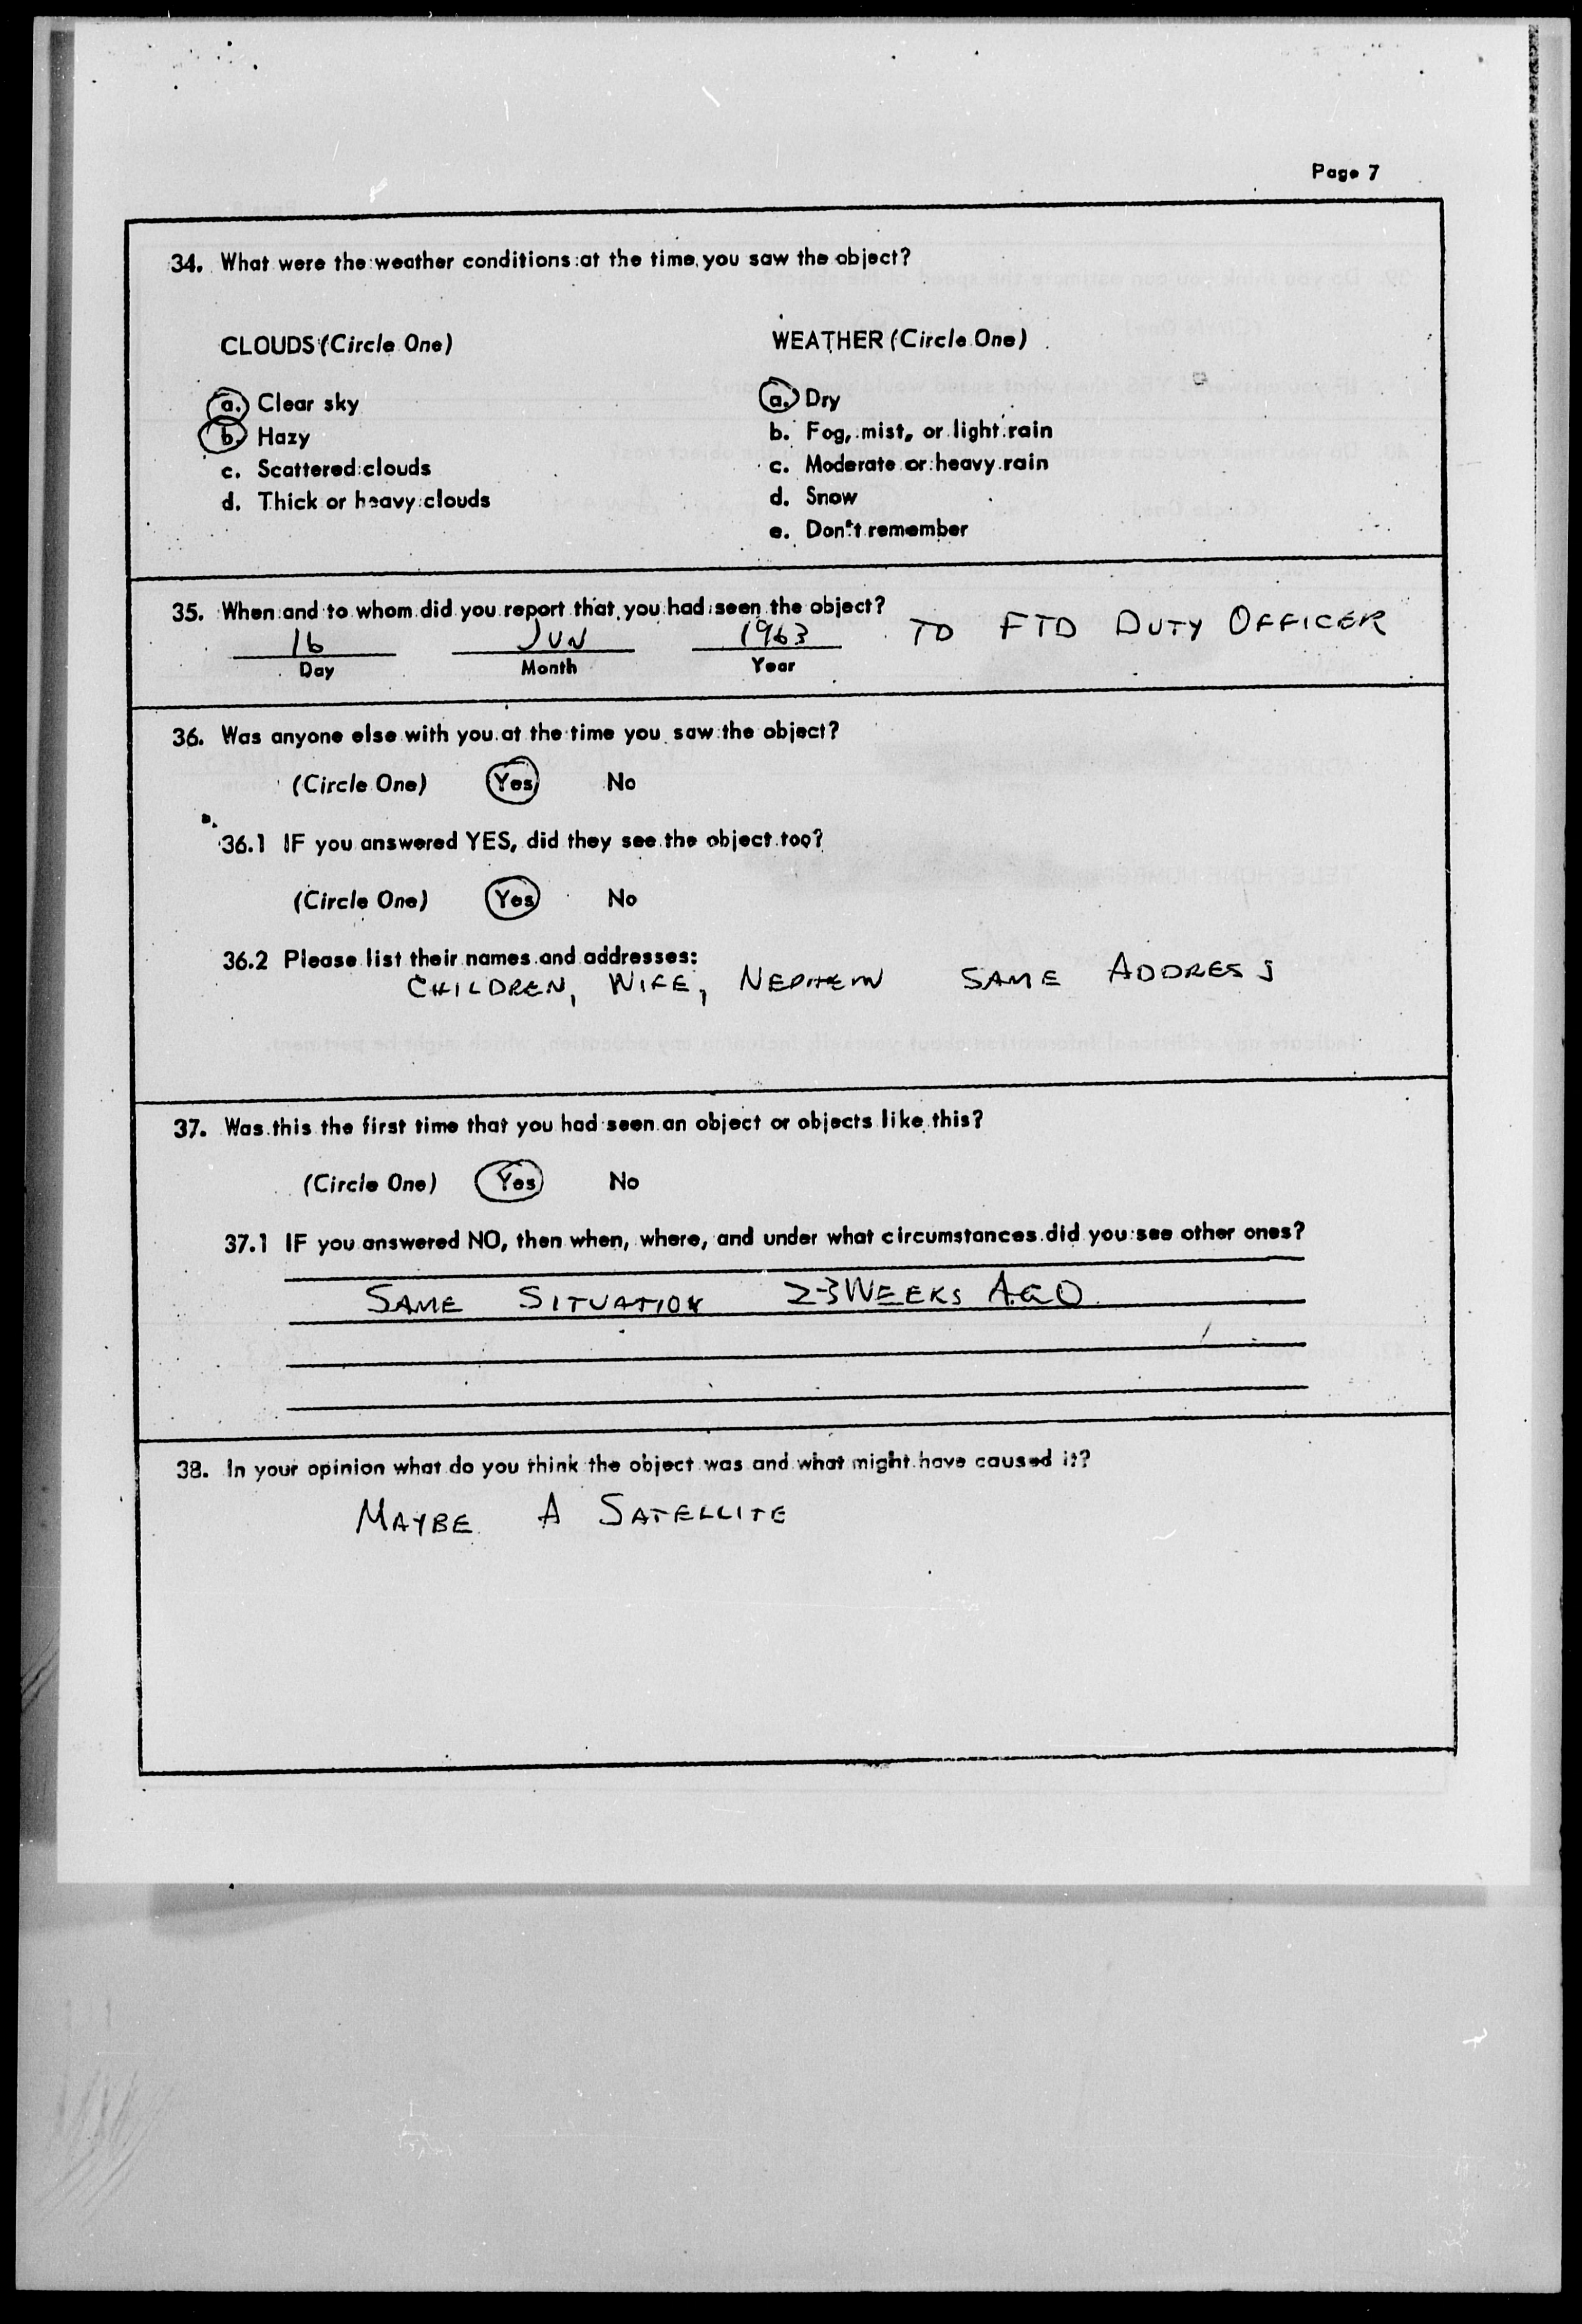 Page 7
34. What were the weather conditions at the time you saw the object?
CLOUDS (Circle One)
WEATHER (Circle One)
a. Clear sky
b. Hazy
c. Scattered clouds
d. Thick or heavy clouds
a. Dry
b. Fog, mist, or light rain
c. Moderate or heavy rain
d. Snow
e. Don't remember
35. When and to whom did you report that you had seen the object?
16 JUN 1963 TO FTD DUTY OFFICER
Day Month Year
36. Was anyone else with you at the time you saw the object?
(Circle One) Yes No
36.1 IF you answered YES, did they see the object too?
(Circle One) Yes No
36.2 Please list their names and addresses:
CHILDREN, WIFE, NEPHEW SAME ADDRESS
37. Was this the first time that you had seen an object or objects like this?
(Circle One) Yes No
37.1 IF you answered NO, then when, where, and under what circumstances did you see other ones?
SAME SITUATION 2-3 WEEKS AGO
38. In your opinion what do you think the object was and what might have caused it?
MAYBE A SATELLITE